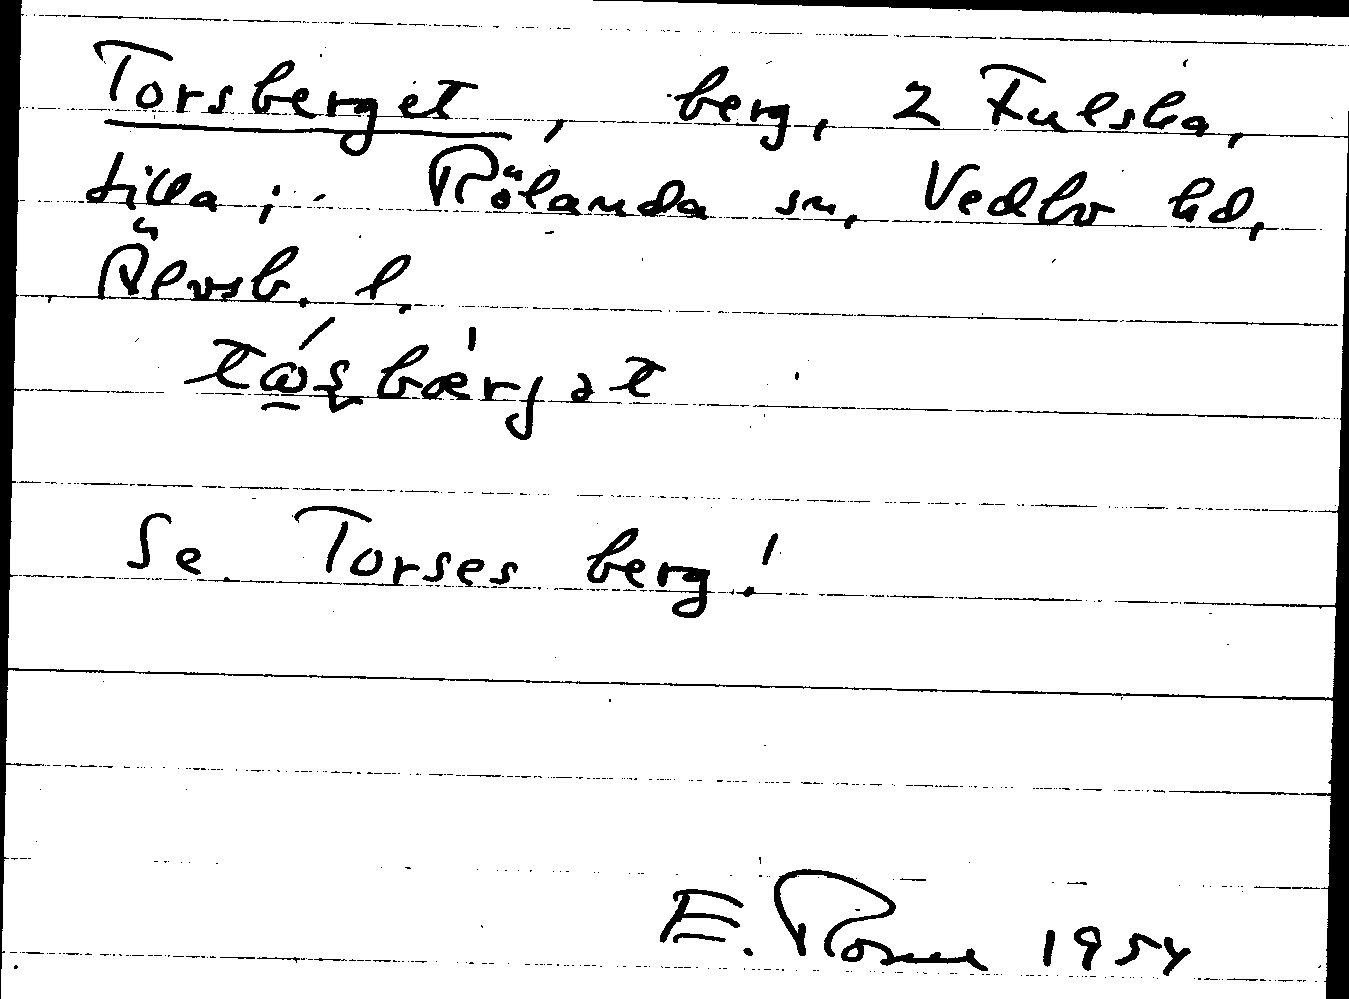 Torsberget, berg, 2 Fulska,
lilla; Rölanda sn, Vedbo hd,
Älvsb. l.
Se Torses berg!
E. Rosell 1954